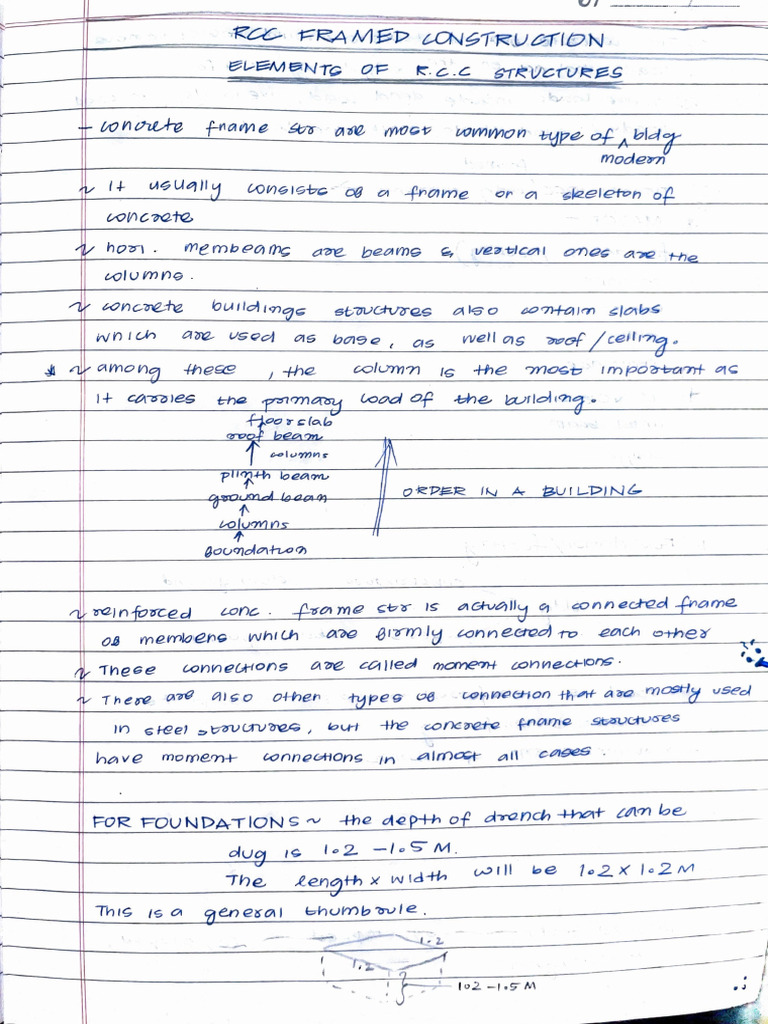 RCC FRAMED CONSTRUCTION
ELEMENTS OF R.C.C STRUCTURES
- concrete frame str are most common type of ^ bldg
modern
~ It usually consists of a frame or a skeleton of
concrete
~ hori. membeams are beams & vertical ones are the
columns.
~ concrete buildings structures also contain slabs
which are used as base, as well as roof/ceiling.
* ~ among these, the column is the most important as
it carries the primary load of the building.
floor slab
roof beam
↑ columns
plinth beam
↑
ground beam
↑
columns
↑
foundation
ORDER IN A BUILDING
~ reinforced conc. frame str is actually a connected frame
of members which are firmly connected to each other
~ These connections are called moment connections.
~ There are also other types of connection that are mostly used
in steel structures, but the concrete frame structures
have moment connections in almost all cases.
FOR FOUNDATIONS ~ the depth of drench that can be
dug is 1.2 - 1.5 M.
The length x width will be 1.2 x 1.2 M
This is a general thumbrule.
1.2
1.2
1.2 - 1.5 M